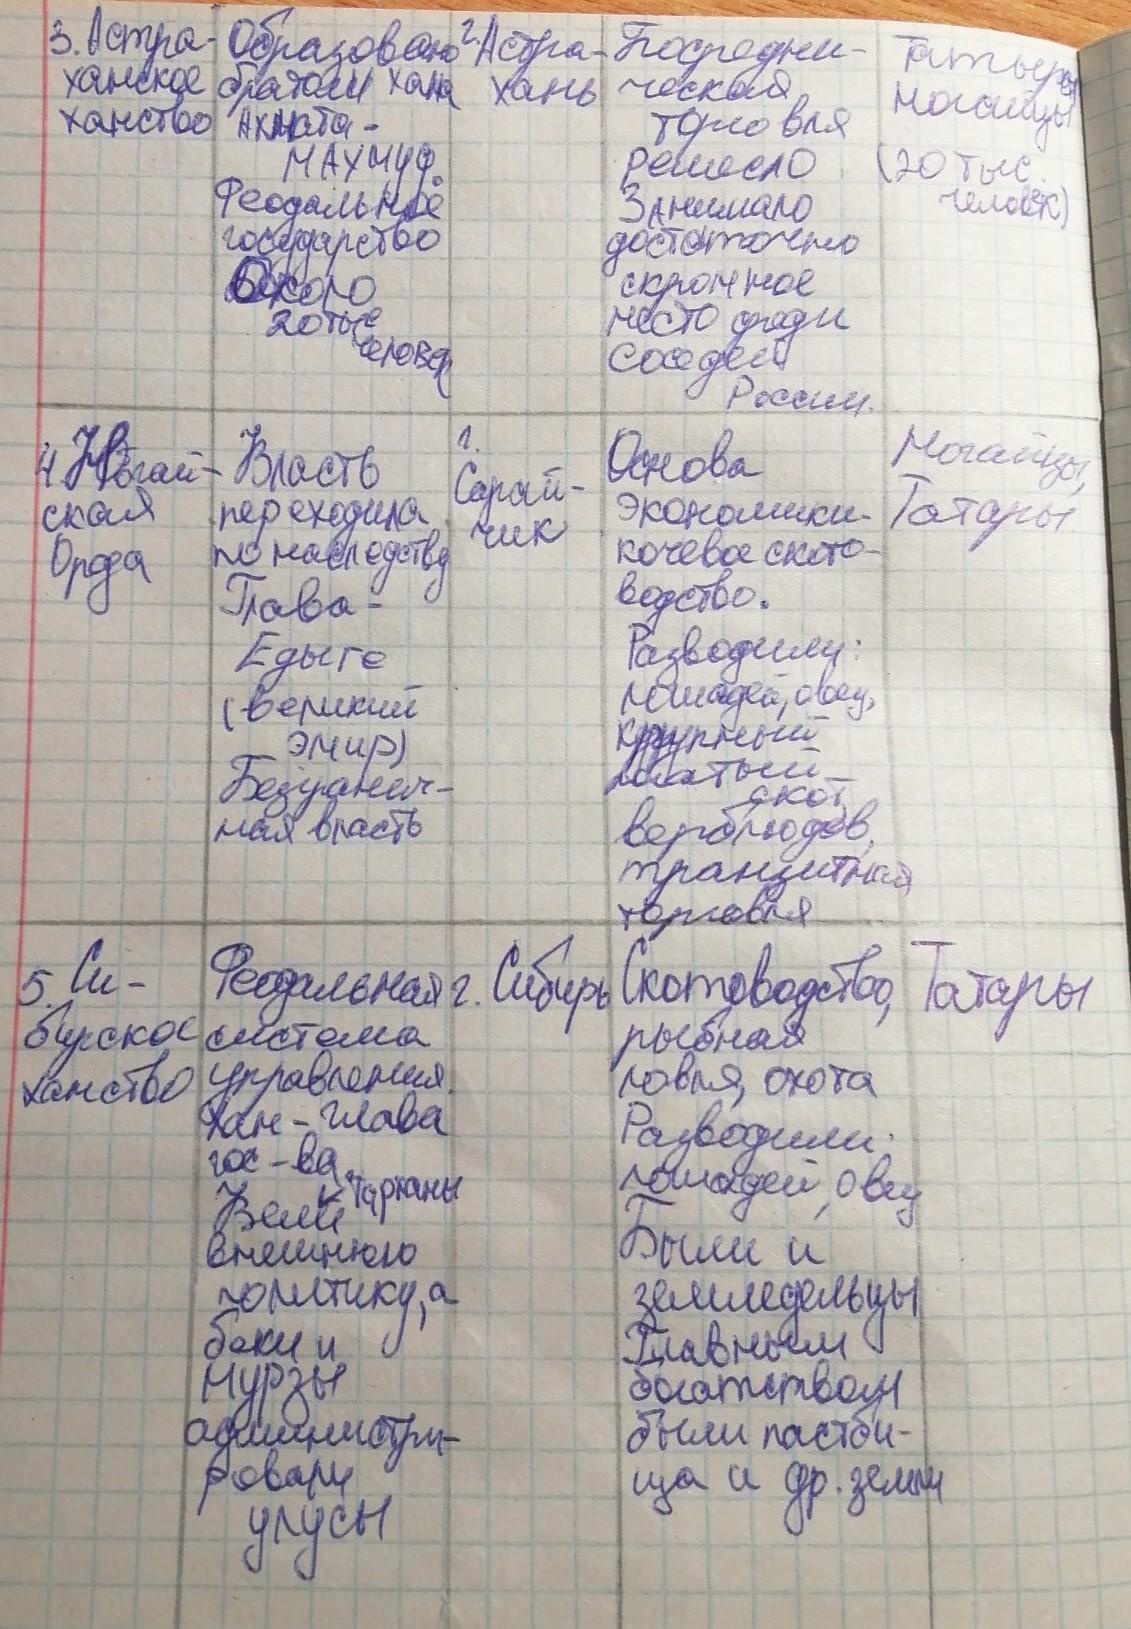 3. Астра-
ханское
ханство
Образовано
братом хана
Ахмата -
Махмуд.
Феодальное
государство
Около
20 тыс
человек
г. Астра-
хань
Посредни-
ческая
торговля
ремесло
Занимало
достаточно
скромное
место среди
соседей
России.
Татары
Ногайцы
(20 тыс.
человек)
4. Ногай-
ская
Орда
Власть
переходила
по наследству
Глава -
Едыге
(великий
эмир)
Безгранич-
ная власть
г.
Сарай-
чик
Основа
экономики -
кочевое ското-
водство.
Разводили:
лошадей, овец,
крупный
рогатый
скот,
верблюдов,
транзитная
торговля
Ногайцы,
Татары
5. Си-
бирское
ханство
Феодальная
система
управления.
Хан - глава
гос-ва.
Тарханы
Вели
внешнюю
политику, а
беки и
мурзы
администри-
ровали
улусы
г. Сибирь
Скотоводство,
рыбная
ловля, охота
Разводили:
лошадей, овец
Были и
земледельцы
Главным
богатством
были пастби-
ща и др. земли
Татары